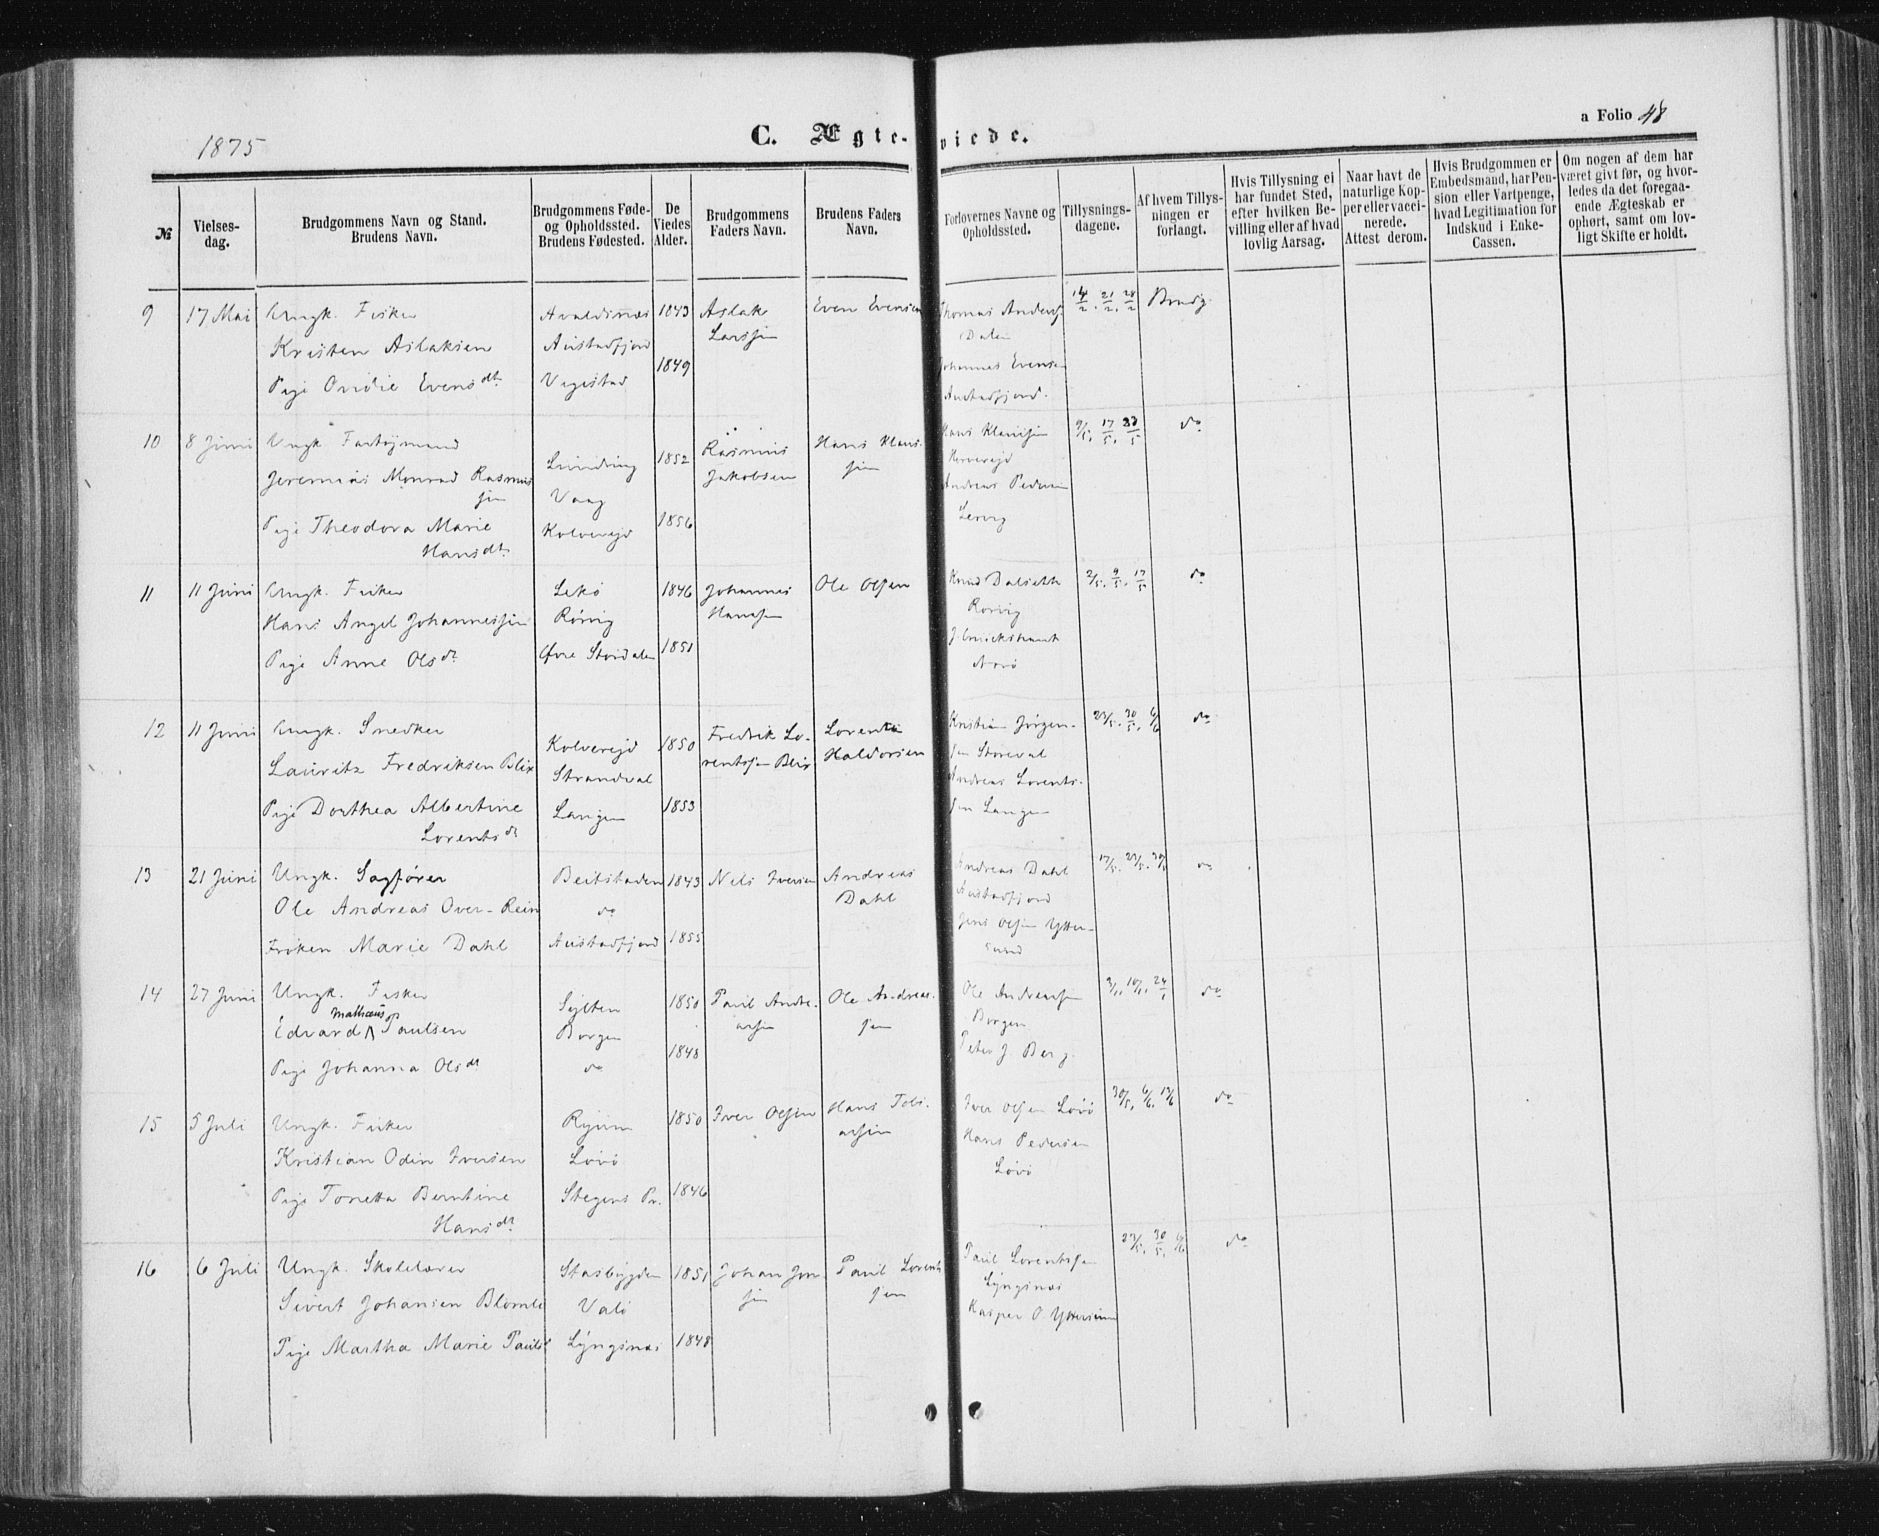 1875
C. Ægte-viede.
a Folio 48
№
Vielses-
dag.
Brudgommens Navn og Stand.
Brudens Navn.
Brudgommens Føde-
og Opholdssted.
Brudens Fødested.
De
Viedes
Alder.
Brudgommens
Faders Navn.
Brudens Faders
Navn.
Forlovernes Navne og
Opholdssted.
Tillysnings-
dagene.
Af hvem Tillys-
ningen er
forlangt.
Hvis Tillysning ei
har fundet Sted,
efter hvilken Be-
villing eller af hvad
lovlig Aarsag.
Naar havt de
naturlige Kop-
per eller vacci-
nerede.
Attest derom.
Hvis Brudgommen er
Embedsmand, har Pen-
sion eller Vartpenge,
hvad Legitimation for
Indskud i Enke-
Cassen.
Om nogen af dem har
været givt før, og hvor-
ledes da det foregaa-
ende Ægteskab er
ophørt, samt om lov-
ligt Skifte er holdt.
9
17 Mai
Ungk. Fisker
Kristen Aslaksen
Pige Ovidie Evensdt
Avaldsnæs
Austadfjord
Vegistad
1843
1849
Aslak
Larssen
Even Evensen
Thomas Anders
Dalen
Johannes Evensen
Austadfjord.
14/2, 21/2, 28/2
Brudg.
10
8 Juni
Ungk. Fartøjmand
Jeremias Monrad Rasmus
sen
Pige Theodora Marie
Hansdt
Vaag
Kolvereid
1852
1856
Rasmus
Jakobsen
Hans Klaus-
sen
Hans Klaussen
Andreas Pedersen
Lervig
9/5, 17/5, 23/5
do
11
11 Juni
Ungk. Fisker
Hans Angel Johannessen
Pige Anne Olsdt
Lekø
Rørvig
Øvre Stordalen
1846
1851
Johannes
Hanssen
Ole Olsen
Knud Dalseth
Rørvig
2/5, 9/5, 17/5
do
12
11 Juni
Ungk. Snedker
Lauritz Fredriksen Blix
Pige Dorthea Albertine
Lorentsdt
Kolvereid
Strandval
Langen
1850
1853
Fredrik Lo-
rentssen Blix
Lorents
Haldorsen
Kristian Jörgen-
sen Storeval
Andreas Lorents-
sen Langen
23/5, 30/5, 6/6
do
13
21 Juni
Ungk. Sagfører
Ole Andreas Over-Rein
Frøken Marie Dahl
Beitstaden
do
Austadfjord
1843
1855
Nels Iversen
Andreas
Dahl
Andreas Dahl
Austadfjord
Jens Olsen Ytter-
sund
17/5, 23/5, 30/5
do
14
27 Juni
Ungk. Fisker
Edvard Mathæus Paulsen
Pige Johanna Olsdt
Sylten
Borgen
do
1850
1848
Paul Andre-
assen
Ole Andreas-
sen
Ole Andreassen
Borgen
Peter J. Berg.
3/1, 10/1, 24/1
do
15
5 Juli
Ungk. Fisker
Kristian Odin Iversen
Pige Tonetta Berntine
Hansdt
Ryum
Løvø
Stegens Pr.
1850
1846
Iver Olsen
Hans Tobi-
assen
Iver Olsen Løvø
Hans Pedersen
Løvø
30/5, 6/6, 13/6
do
16
6 Juli
Ungk. Skolelærer
Sivert Johansen Blomli
Pige Martha Marie Paulsd
Stadsbygden
Valø
Lyngsnæs
1851
1848
Johan Jon
sen
Paul Lorents
sen
Paul Lorentssen
Lyngsnæs
Kasper O. Yttersund
23/5, 30/5, 6/6
do